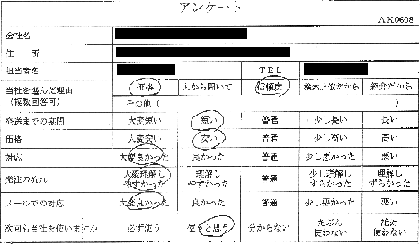 アンケート
AK0608
会社名
住 所
担当者名 TEL
当社を選んだ理由 価格 人から聞いて 信頼度
(複数回答可) その他( )
発送までの期間 大変短い 短い 普通 少し長い 長い
価格 大変安い 安い 普通 少し高い 高い
対応 大変良かった 良かった 普通 少し悪かった 悪い
発注の流れ 大変理解し 理解し 普通 少し理解し 理解し
やすかった やすかった ずらかった ずらかった
メールでの対応 大変良かった 良かった 普通 少し悪かった 悪い
次回も当社を使いますか 必ず使う 使うと思う 分からない たぶん
使わない 使わない